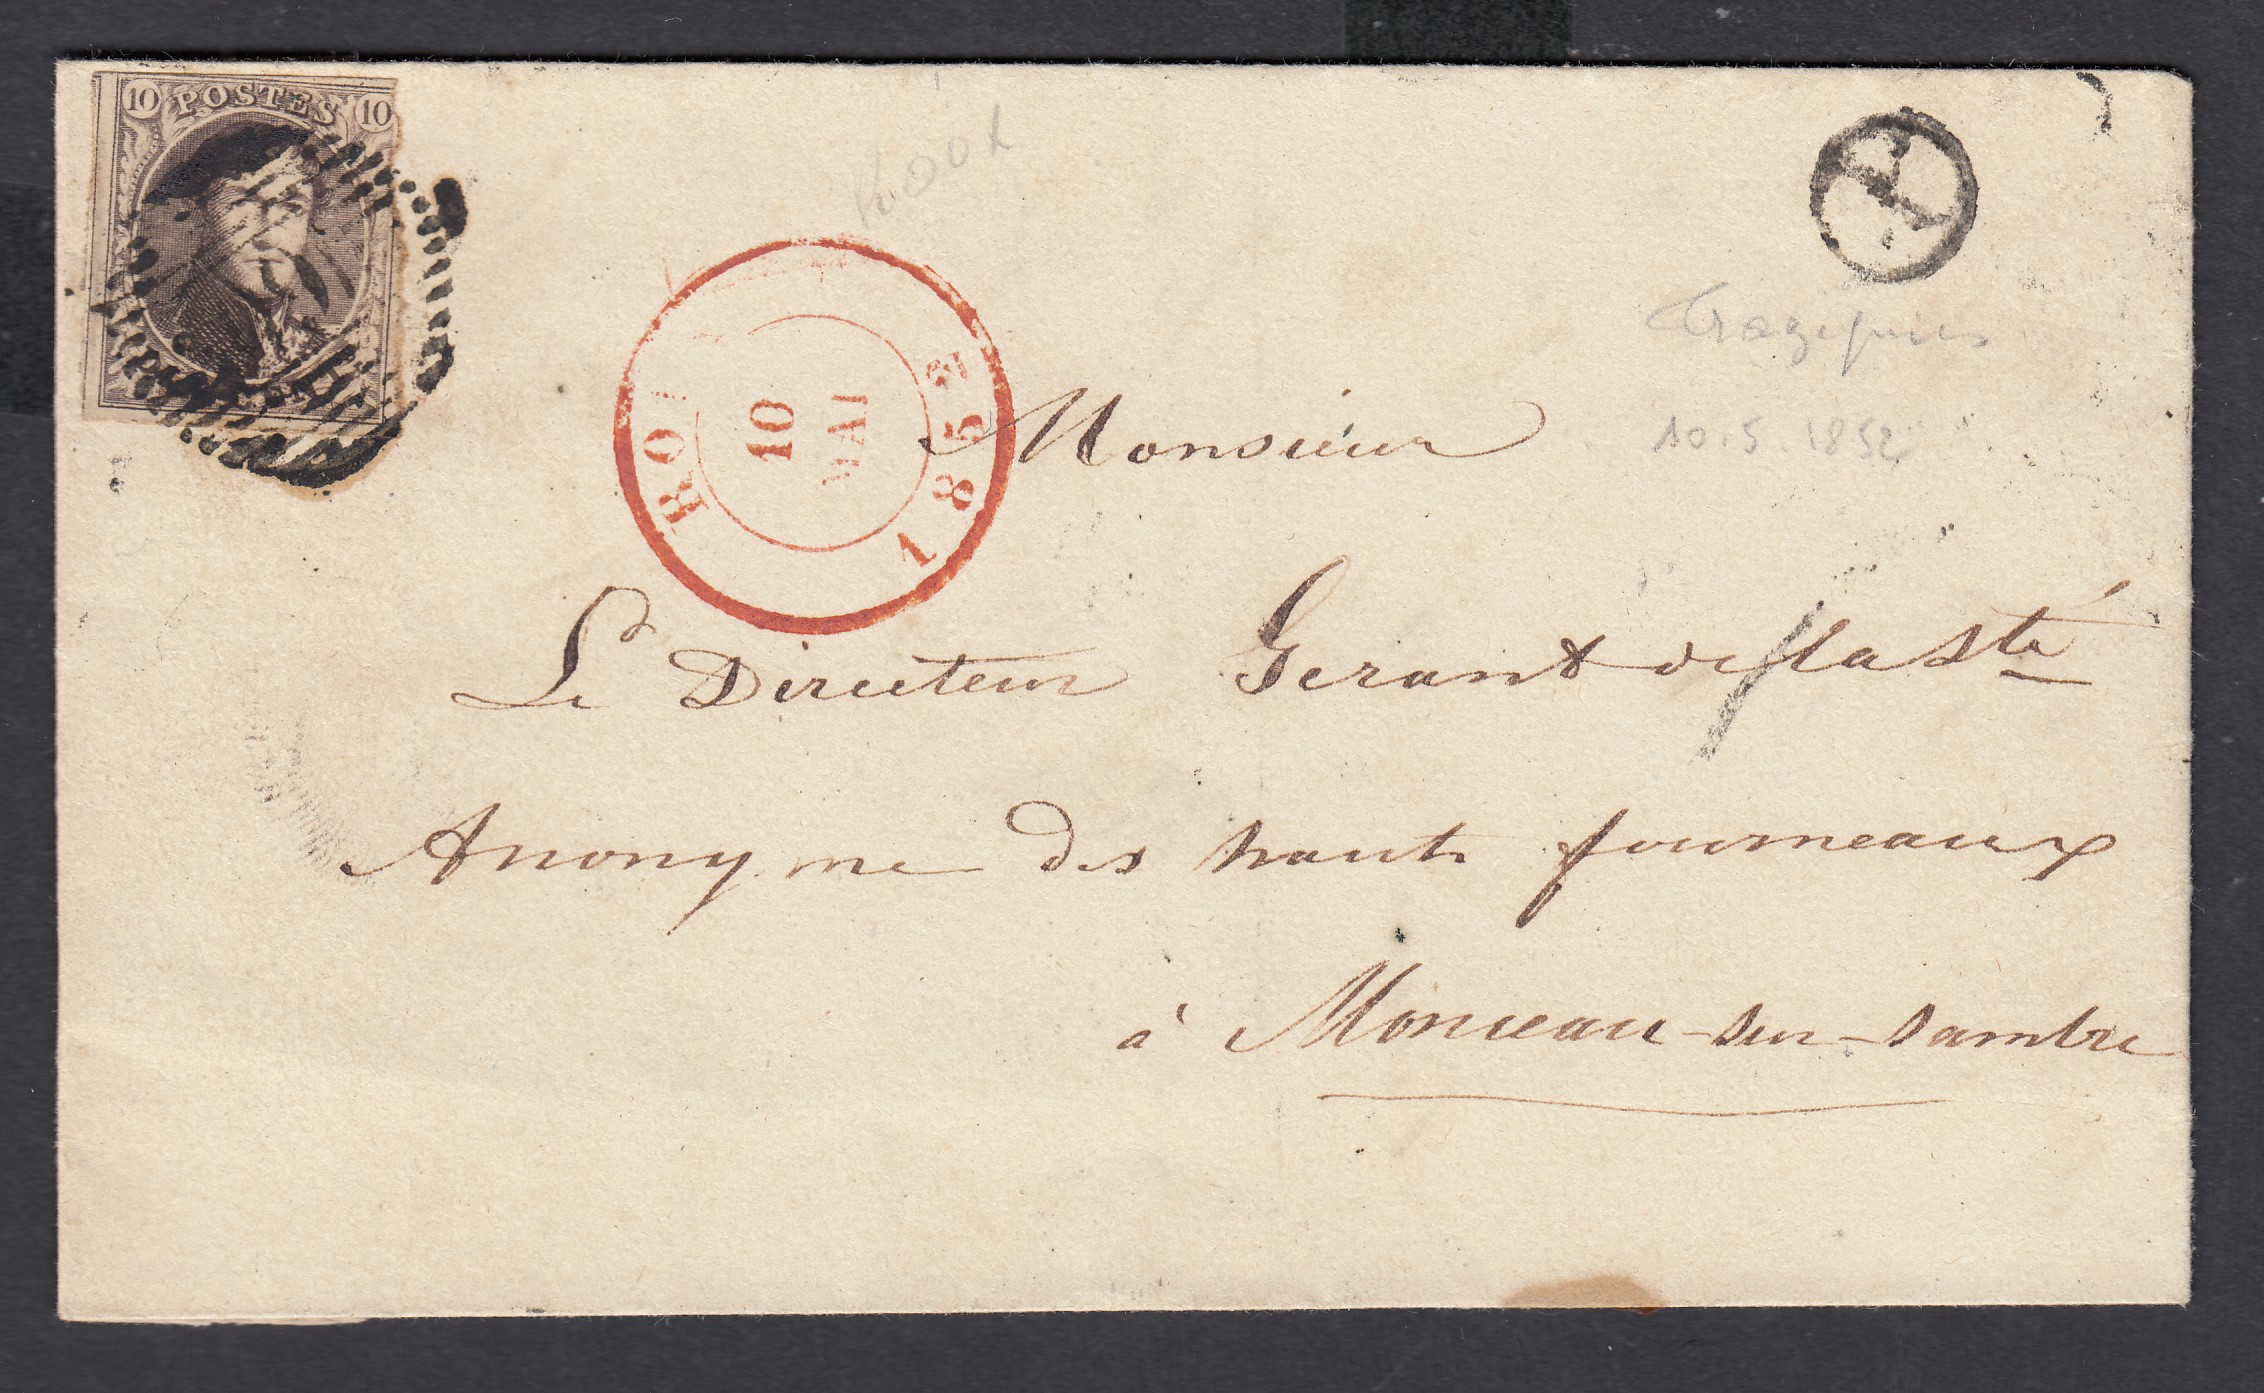 10 POSTES 10
10
MAI
1852
Monsieur
10.5.1852
Le Directeur Gerant de la Sté
Anonyme des hauts fourneaux
à Monceau-sur-Sambre